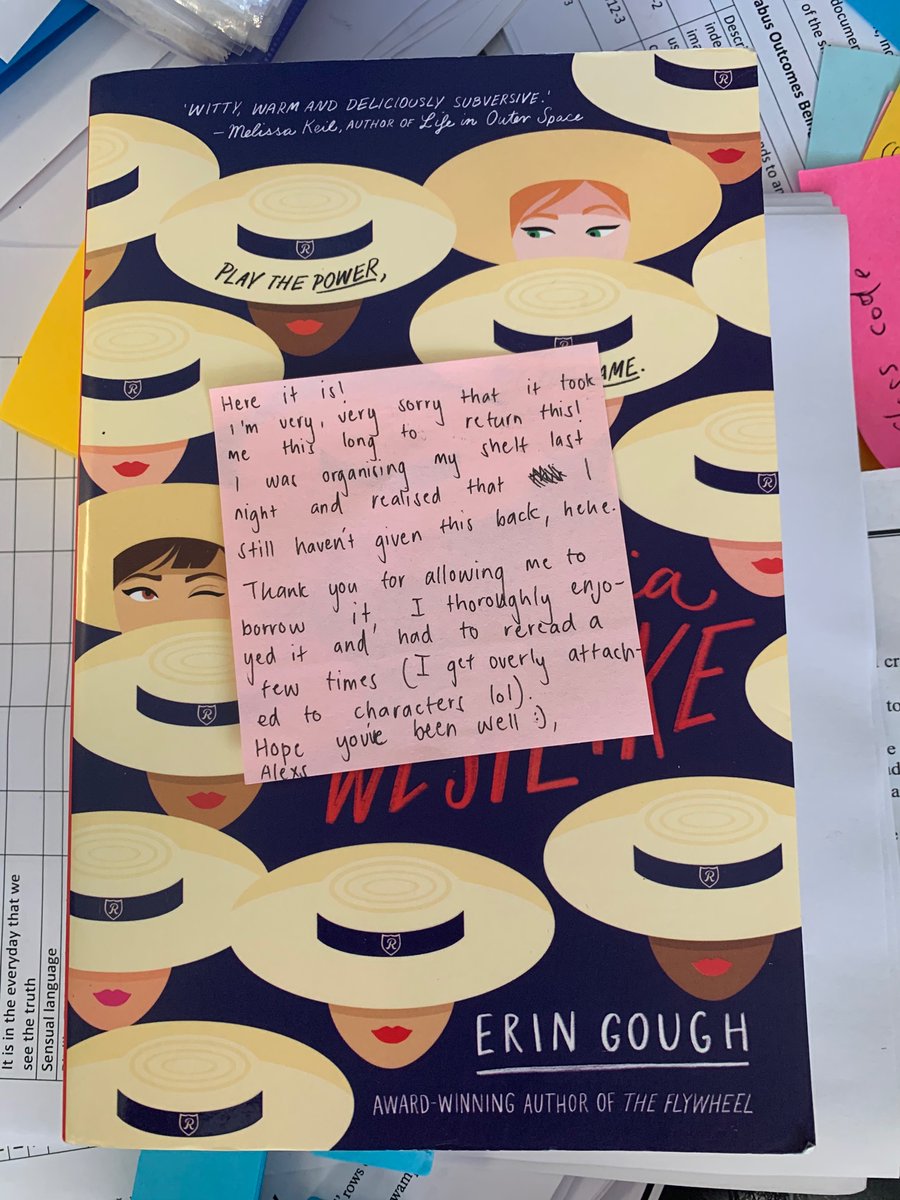 'WITTY, WARM AND DELICIOUSLY SUBVERSIVE.'
– Melissa Keil, AUTHOR OF Life in Outer Space
PLAY THE POWER,
AME.
Here it is!
I'm very, very sorry that it took
me this long to return this!
I was organising my shelf last
night and realised that I
still haven't given this back, hehe.
Thank you for allowing me to
borrow it, I thoroughly enjo-
yed it and had to reread a
few times (I get overly attach-
ed to characters lol).
Hope you've been well :),
Alexs
ia
WESTLAKE
ERIN GOUGH
AWARD-WINNING AUTHOR OF THE FLYWHEEL
R
It is in the everyday that we
see the truth
Sensual language
class code
abus Outcomes Bei
12-3
-2
Descri